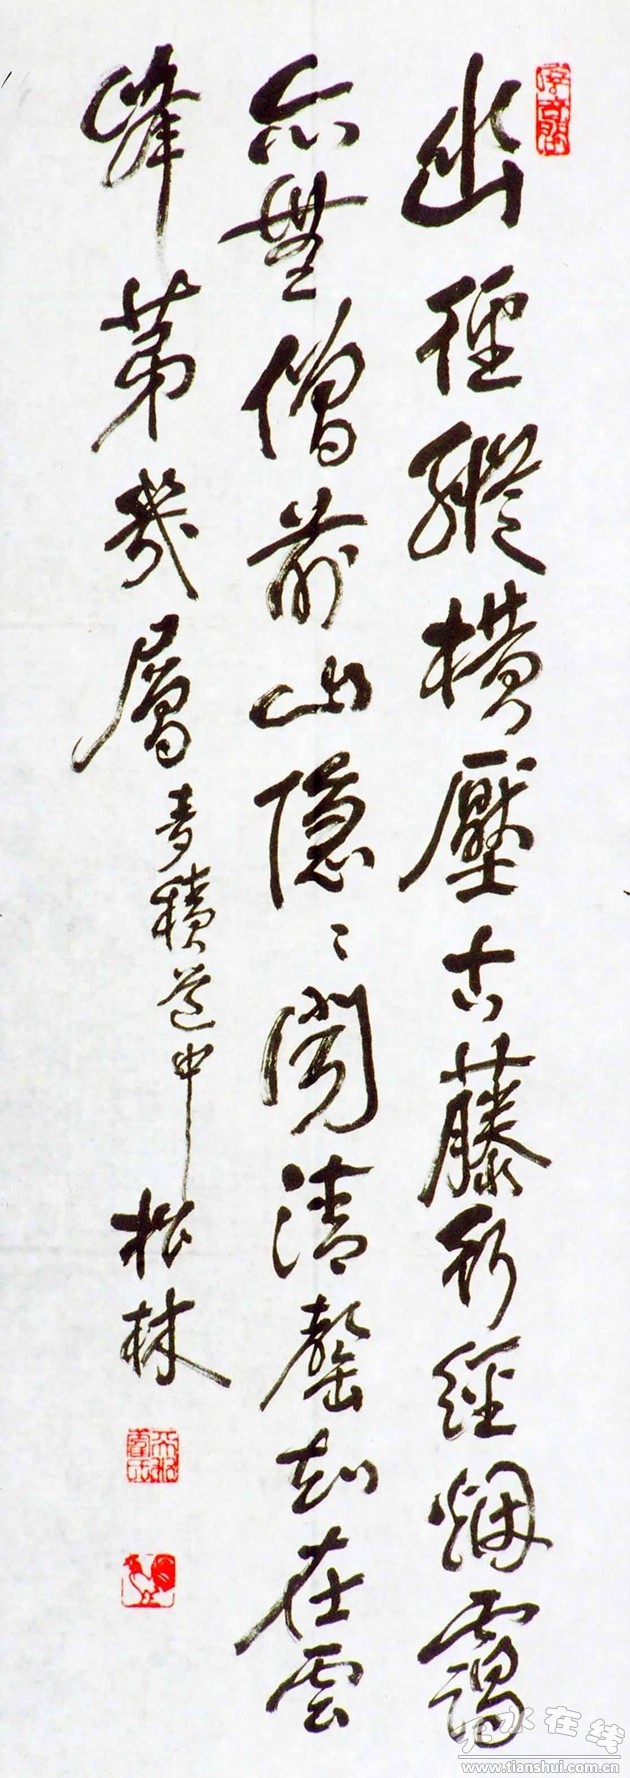 幽徑縱橫壓古藤所經烟靄
亦無僧前山隱〻聞清罄知在雲
峰第幾層
青積道中
松林
天水在线
www.tianshui.com.cn